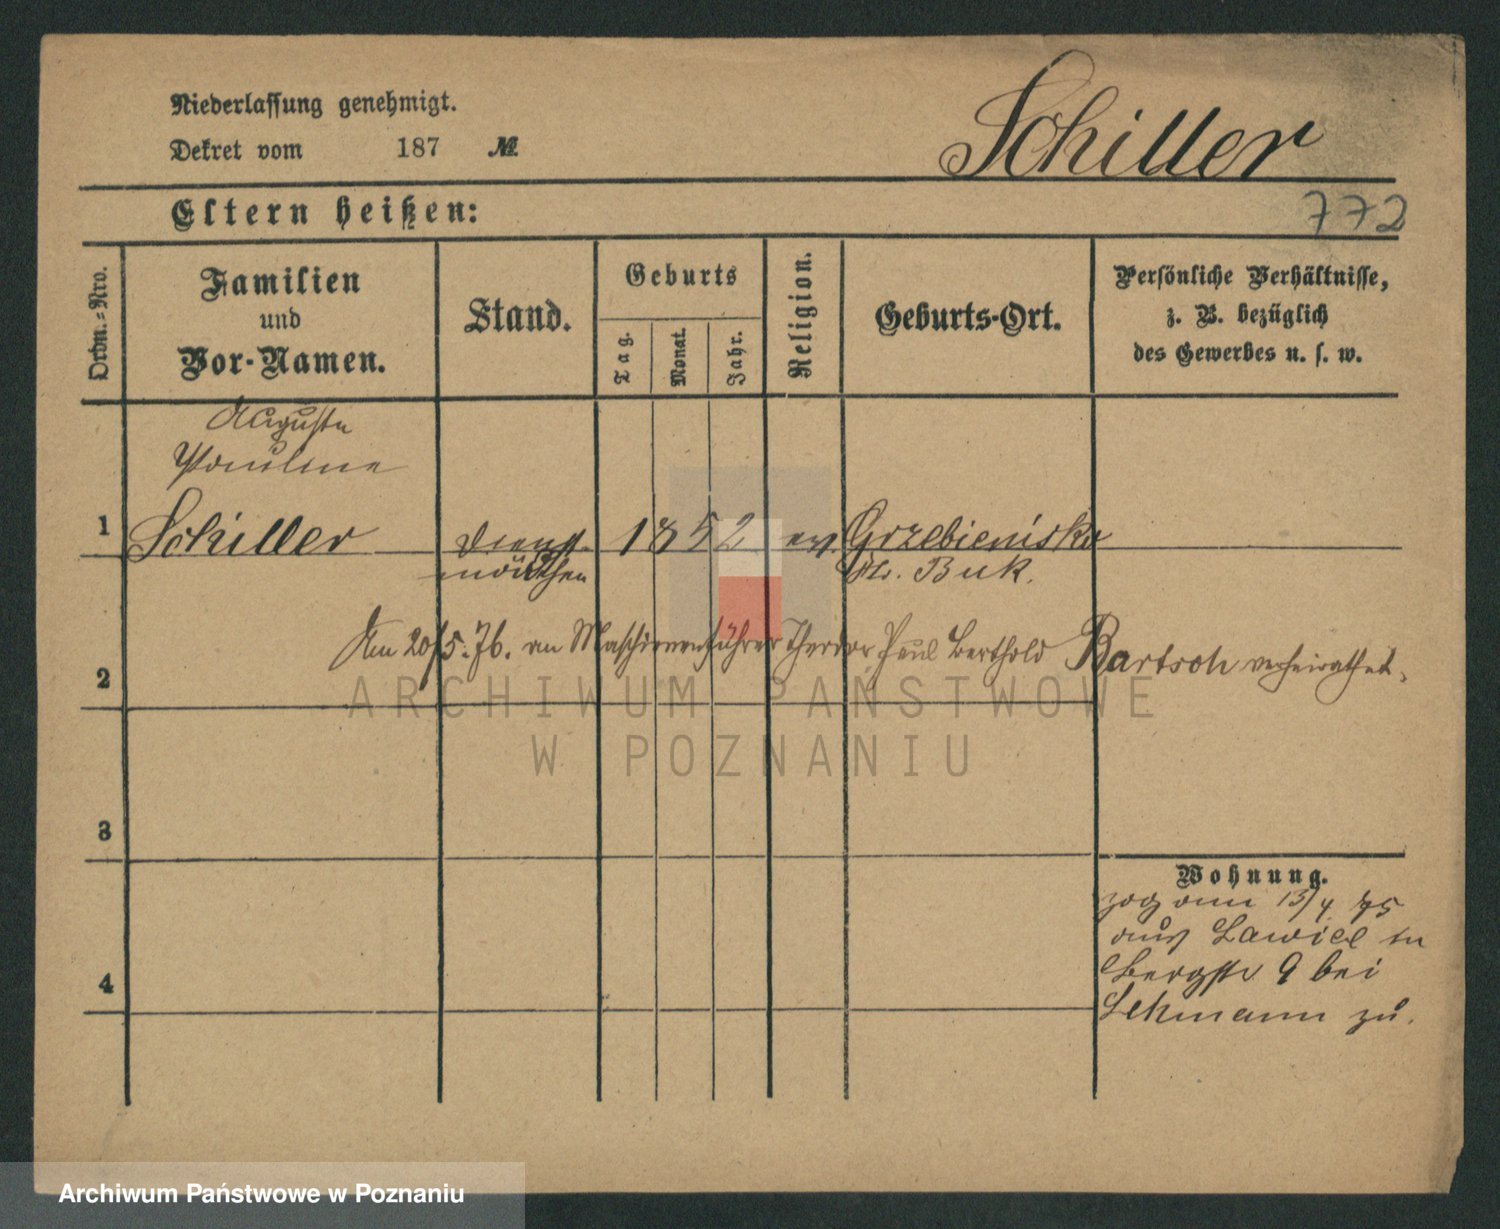 Niederlassung genehmigt.
Dekret vom 187 №
Schiller
772
Eltern heißen:
Ordn.-Nro.
Familien
und
Vor-Namen.
Stand.
Geburts
Tag.
Monat.
Jahr.
Religion.
Geburts-Ort.
Persönliche Verhältnisse,
z. B. bezüglich
des Gewerbes u. s. w.
Auguste
Pauline
1 Schiller Dienst- 1852 ev. Grzebienisko
mädchen Kr. Buk.
Am 20/5. 76. an Maschinenführer Theodor Paul Berthold Bartsch verheirathet.
2
ARCHIWUM PAŃSTWOWE
W POZNANIU
3
Wohnung.
zog am 13/4 75
aus Lawice in
Bergstr 9 bei
4
Lehmann zu.
Archiwum Państwowe w Poznaniu